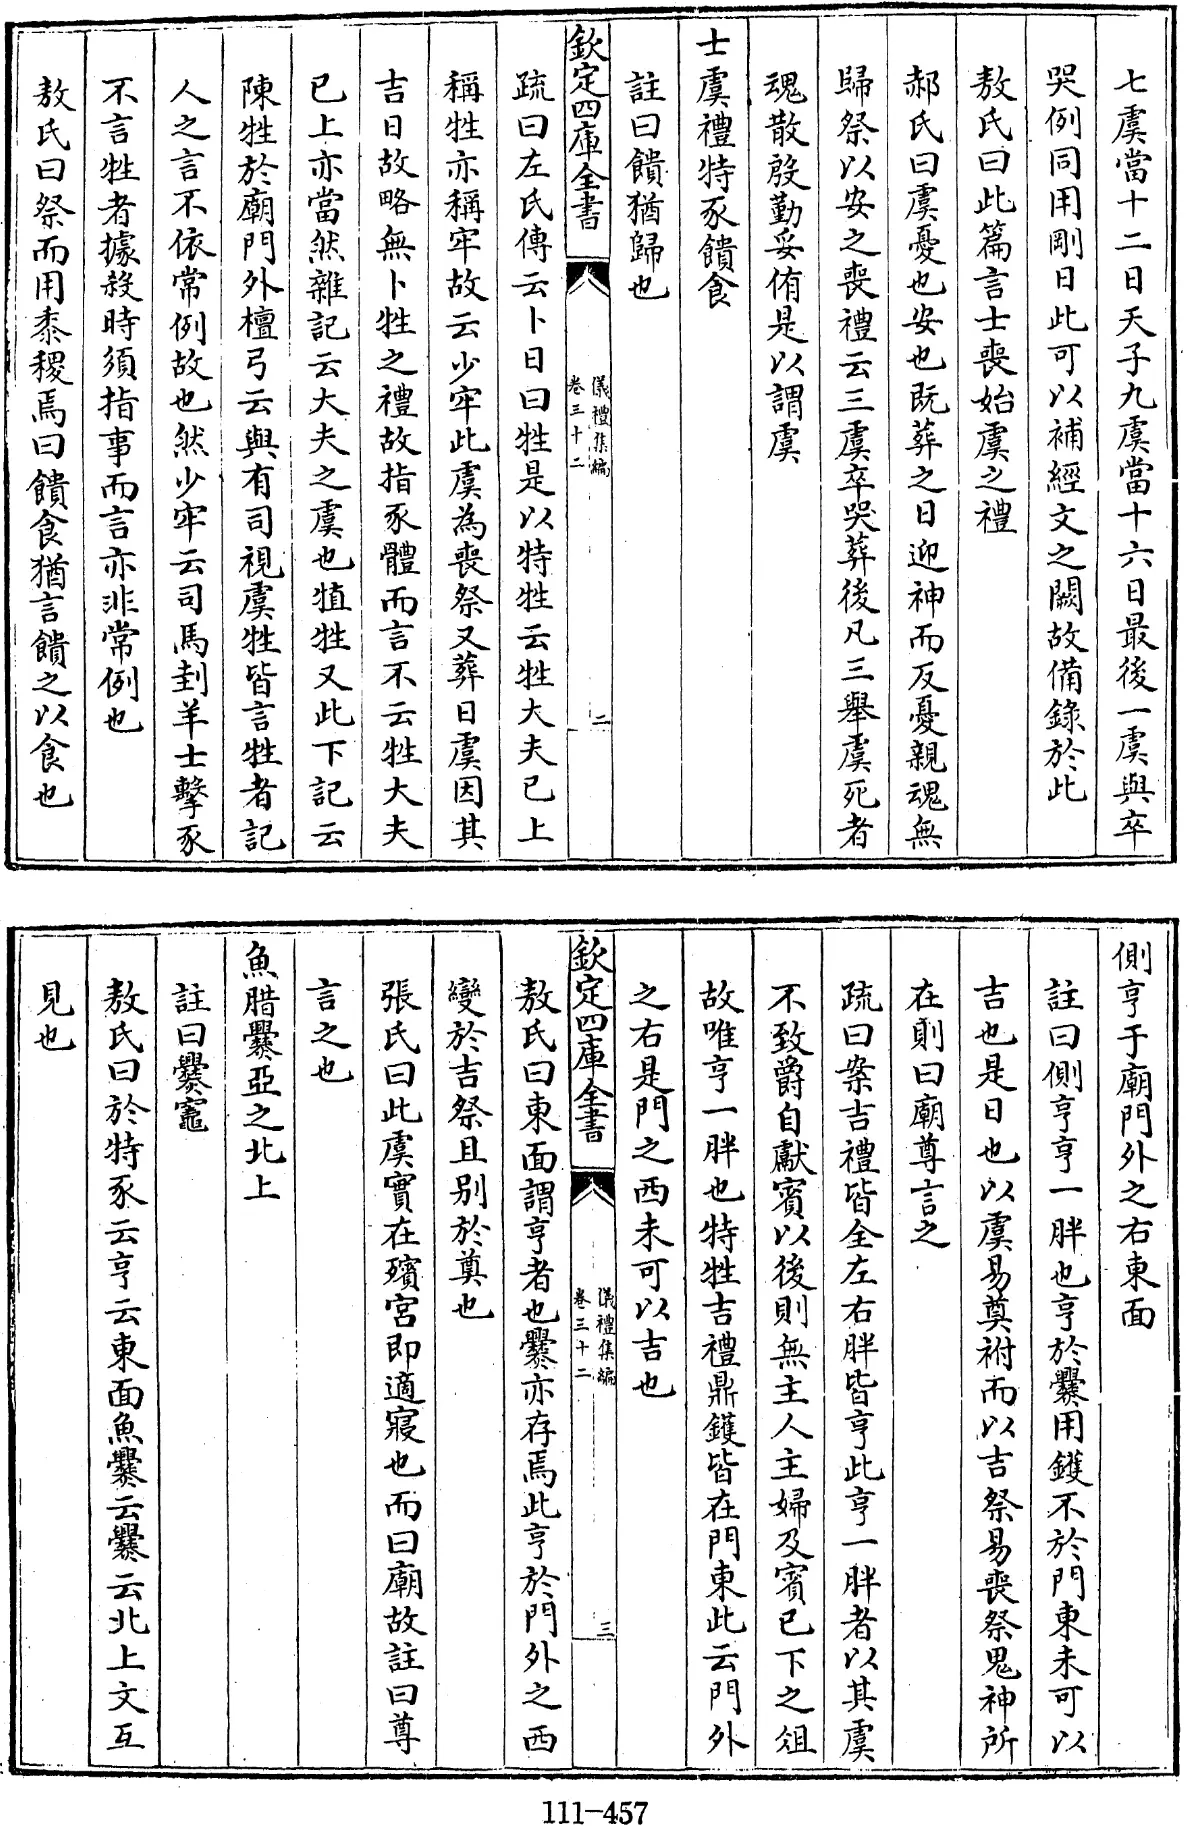 七虞當十二日天子九虞當十六日最後一虞與卒
哭例同用剛日此可以補經文之闕故備錄於此
敖氏曰此篇言士喪始虞之禮
郝氏曰虞憂也安也既葬之日迎神而反憂親魂無
歸祭以安之喪禮云三虞卒哭葬後凡三舉虞死者
魂散殷勤妥侑是以謂虞
士虞禮特豕饋食
註曰饋猶歸也
欽定四庫全書
儀禮集編
卷三十二
二
疏曰左氏傳云卜日曰牲是以特牲云牲大夫已上
稱牲亦稱牢故云少牢此虞為喪祭又葬日虞因其
吉日故略無卜牲之禮故指豕體而言不云牲大夫
已上亦當然雜記云大夫之虞也犆牲又此下記云
陳牲於廟門外檀弓云與有司視虞牲皆言牲者記
人之言不依常例故也然少牢云司馬刲羊士擊豕
不言牲者據殺時須指事而言亦非常例也
敖氏曰祭而用黍稷焉曰饋食猶言饋之以食也
側亨于廟門外之右東面
註曰側亨亨一胖也亨於爨用鑊不於門東未可以
吉也是日也以虞易奠祔而以吉祭易喪祭鬼神所
在則曰廟尊言之
疏曰案吉禮皆全左右胖皆亨此亨一胖者以其虞
不致爵自獻賓以後則無主人主婦及賓已下之俎
故唯亨一胖也特牲吉禮鼎鑊皆在門東此云門外
之右是門之西未可以吉也
欽定四庫全書
儀禮集編
卷三十二
三
敖氏曰東面謂亨者也爨亦存焉此亨於門外之西
變於吉祭且别於奠也
張氏曰此虞實在殯宮即適寢也而曰廟故註曰尊
言之也
魚腊爨亞之北上
註曰爨竈
敖氏曰於特豕云亨云東面魚爨云爨云北上文互
見也
111-457